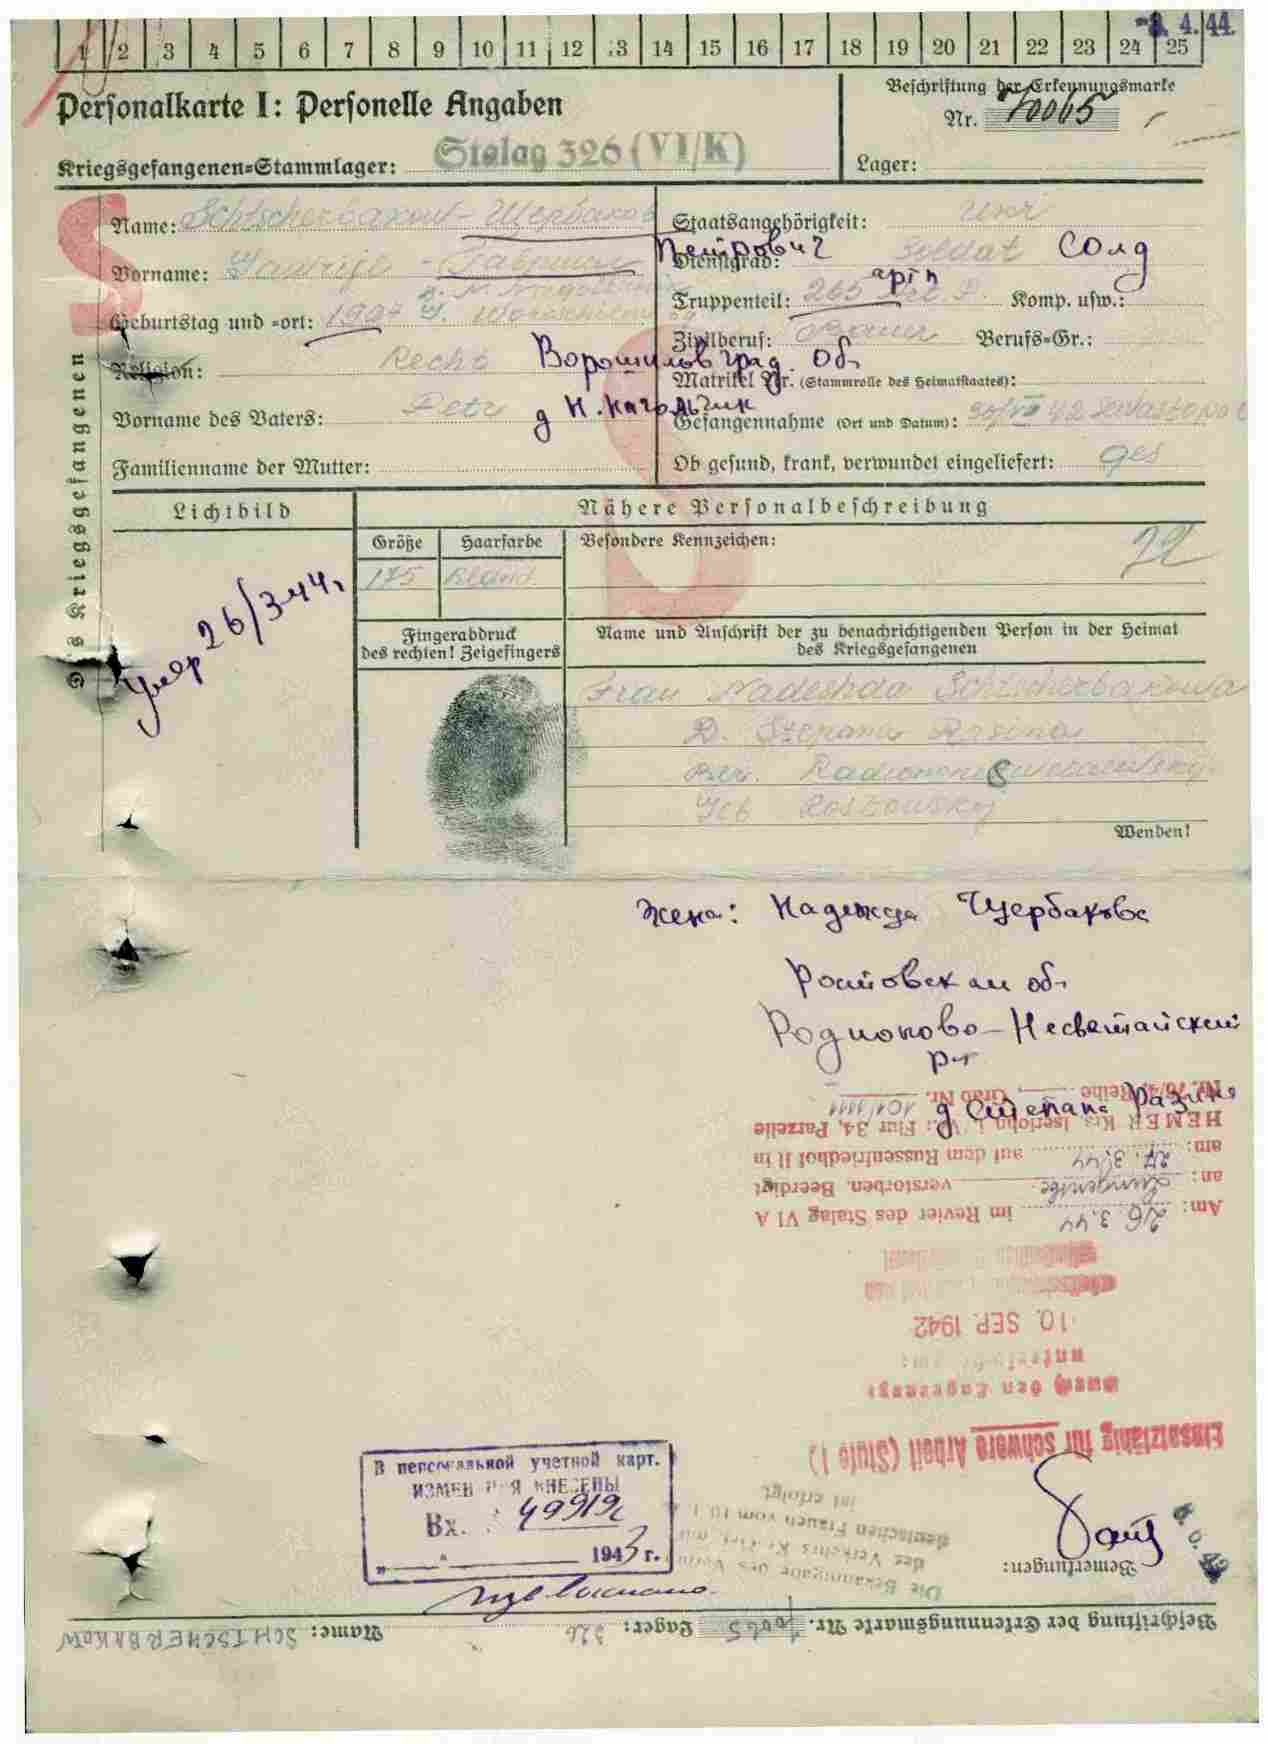 1 2 3 4 5 6 7 8 9 10 11 12 13 14 15 16 17 18 19 20 21 22 23 24 25
4. 44.
Personalkarte I: Personelle Angaben
Beschriftung der Erkennungsmarke
Nr. 70065
Kriegsgefangenen=Stammlager: Stalag 326 (VI/K)
Lager:
Des Kriegsgefangenen
Name: Schtscherbakow - Щербаков
Staatsangehörigkeit: Ukr
Петрович
Vorname: Gawrijl - Гавриил
Dienstgrad: Soldat Солд
артп
Truppenteil: 265 Komp. usw.:
Geburtstag und =ort: 1907
Zivilberuf: Bauer Berufs=Gr.:
Ворошиловград. Об
Religion:
Matrikel Nr. (Stammrolle des Heimatstaates):
д Н. Нагольчик
Vorname des Vaters: Petr
Gefangennahme (Ort und Datum): 42 Sewastopol
Familienname der Mutter:
Ob gesund, krank, verwundet eingeliefert: ges
Lichtbild
Nähere Personalbeschreibung
Größe Haarfarbe Besondere Kennzeichen:
175 Blond
умер 26/3-44г
Fingerabdruck
des rechten! Zeigefingers
Name und Anschrift der zu benachrichtigenden Person in der Heimat
des Kriegsgefangenen
Frau Nadeshda Schtscherbakowa
D. Stepana Rasina
Rostowsky
Wenden!
Жена: Надежда Щербакова
Ростовская об
Родионово-Несветайский
р-н
д Степана Разина
Nr. 70/4, Reihe, Grab Nr. 101/1111
HEMER Krs. Iserlohn i. W.: Flur 34, Parzelle
am: 27. 3. 44 auf dem Russenfriedhof II in
an: Lungentbc. verstorben. Beerdigt
Am: 26. 3. 44 im Revier des Stalag VI A
10. SEP. 1942
Einsatzfähig für schwere Arbeit (Stufe I)
ist erfolgt.
deutschen Frauen vom 10.1.
des Verkehrs
Die Bekanntgabe des
Bemerkungen:
В персональной учетной карт.
ИЗМЕНЕНИЯ ВНЕСЕНЫ
Вх. 49919с
„ “ 1943 г.
Beschriftung der Erkennungsmarke Nr. 70065 Lager: 326 Name: SCHTSCHERBAKOW